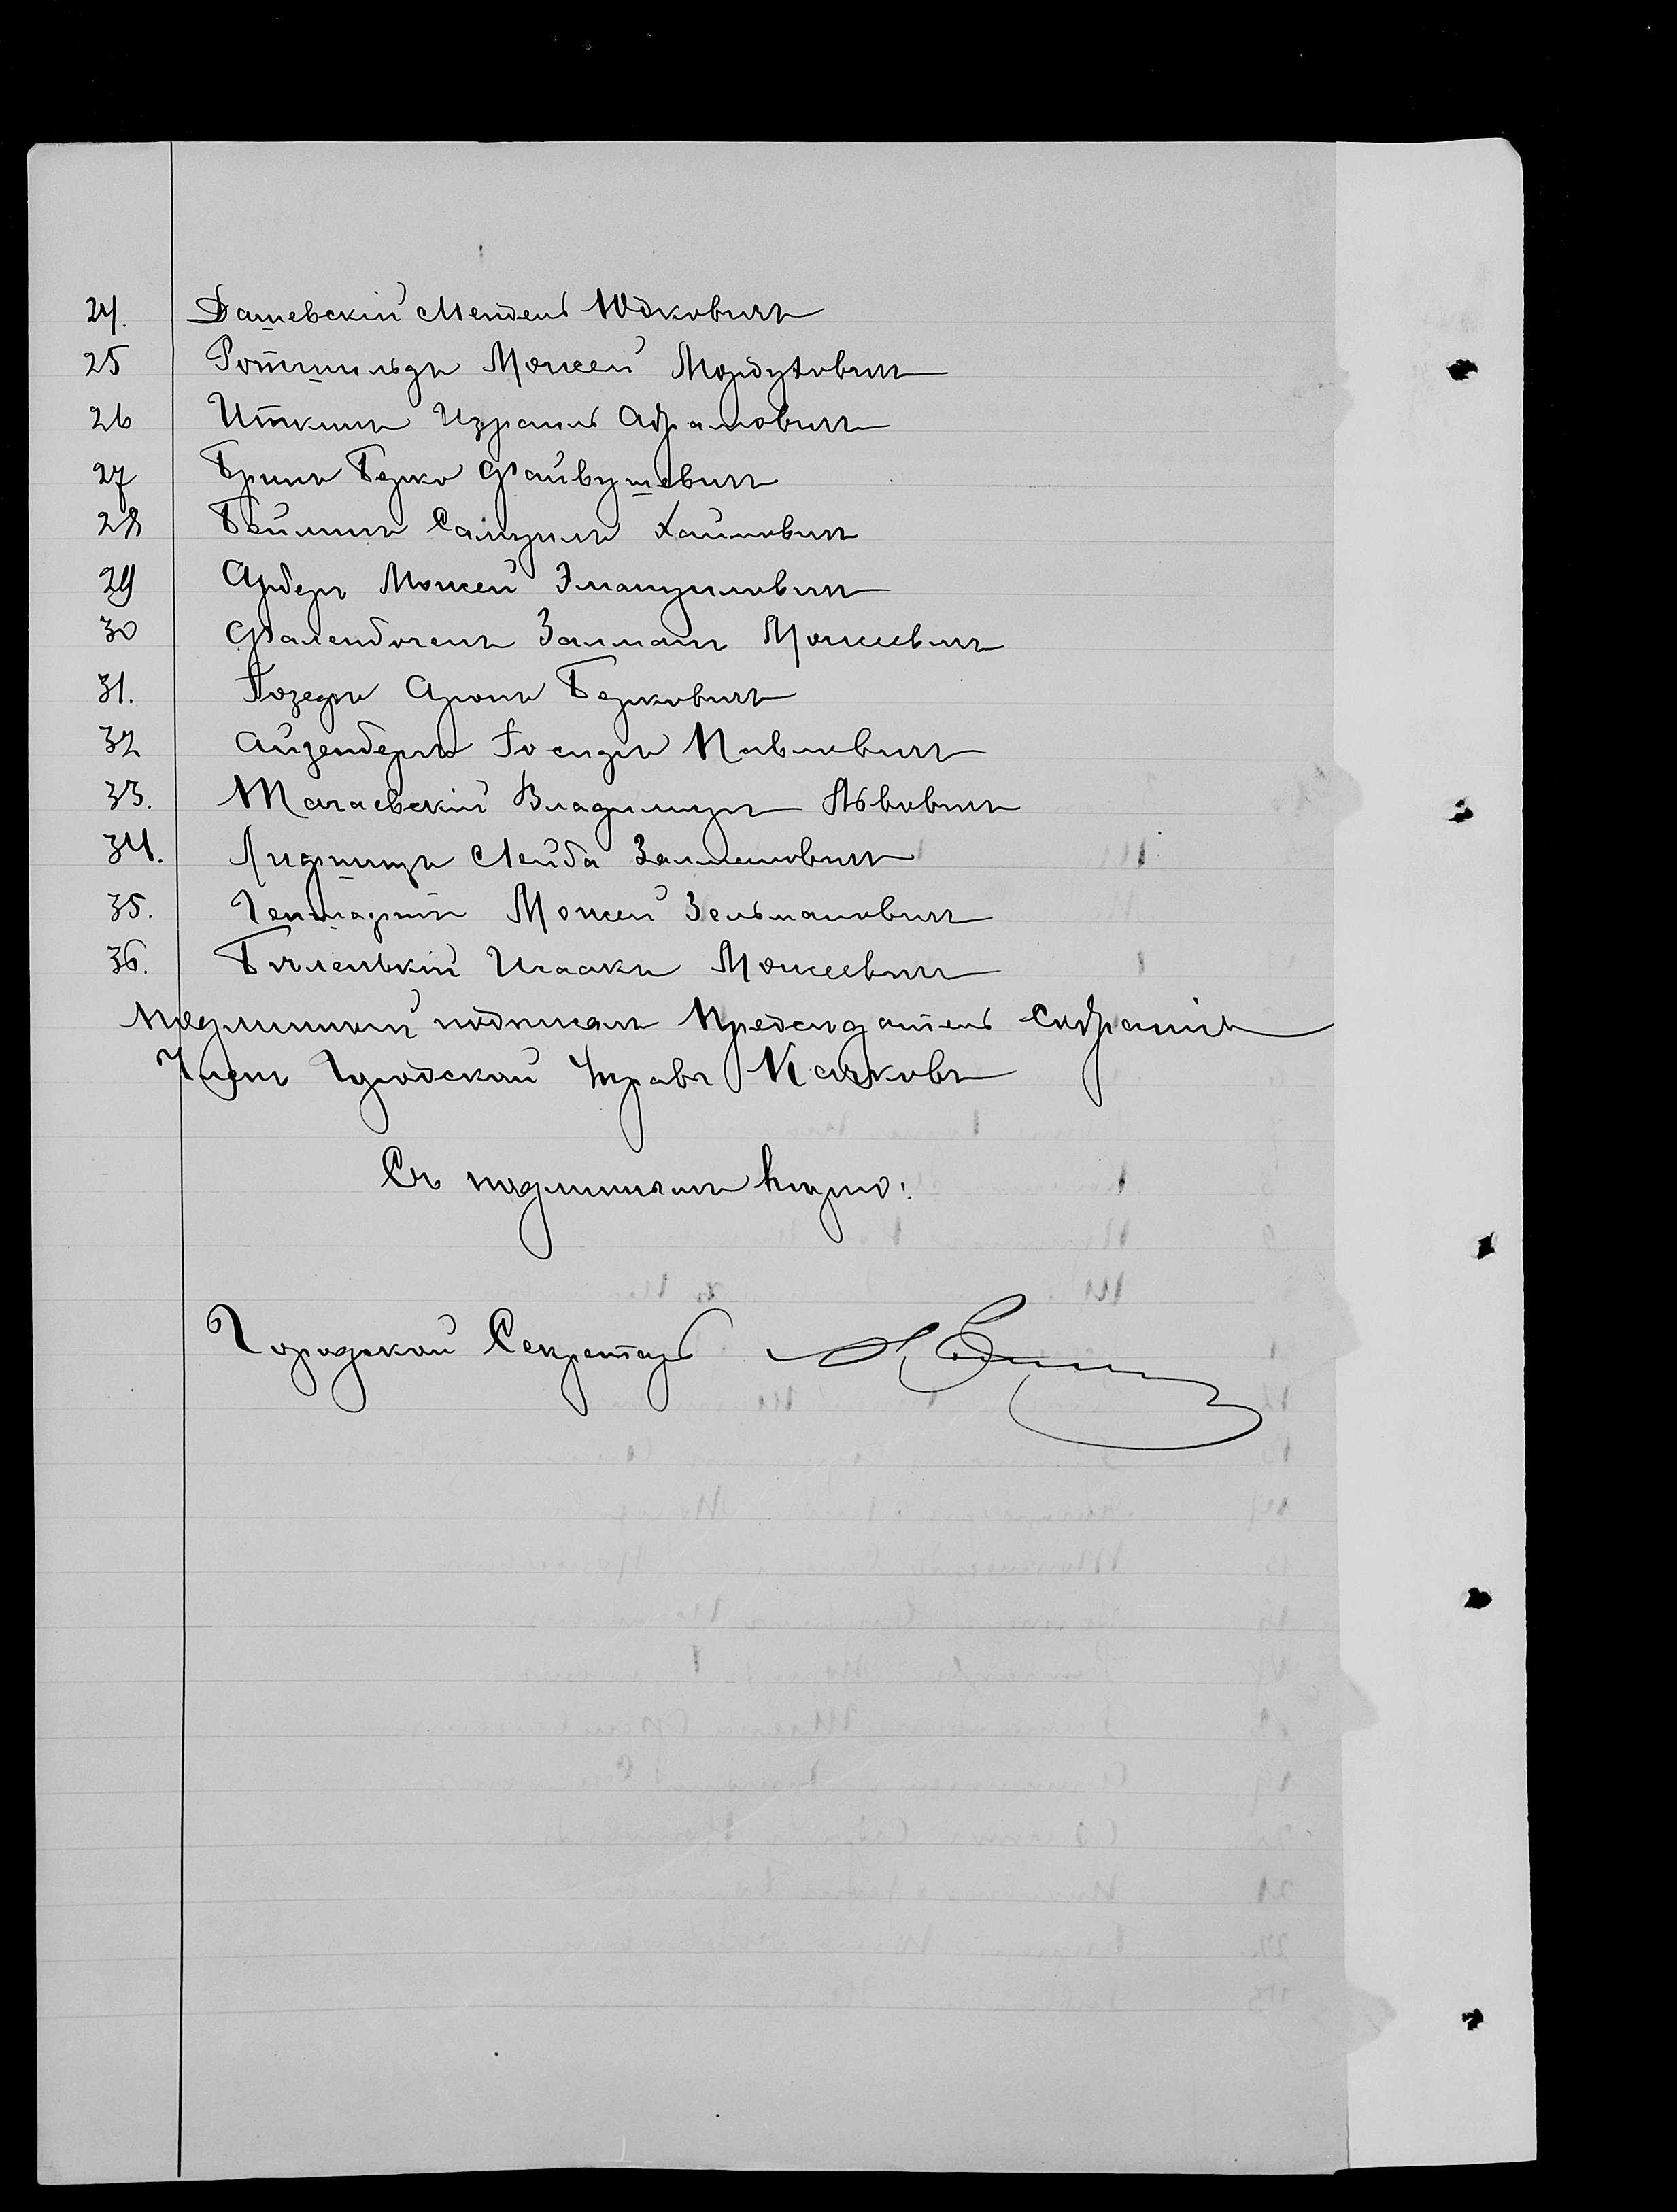 24. Дашевскій Мендель Юдковичъ
25 Ротшильдъ Мовшей Мордуховичъ
26 Иткинъ Израиль Абрамовичъ
27 Бринъ Берко Файвушевичъ
28 Бейлинъ Самуилъ Хаимовичъ
29 Арберъ Мовшей Эмануиловичъ
30 Фалендочекъ Залманъ Моисеевичъ
31. Позеръ Аронъ Берковичъ
32 Айзенбергъ Іосифъ Павловичъ
33. Магаевскій Владимиръ Львовичъ
34. Лифшицъ Лейба Залмановичъ
35. Моисей Зельмановичъ
36. Исаакъ Моисеевичъ
подлинный подписалъ Предсѣдатель Собранія
Членъ Городской Управы Качковъ
Съ подлиннымъ вѣрно:
Городской Секретарь